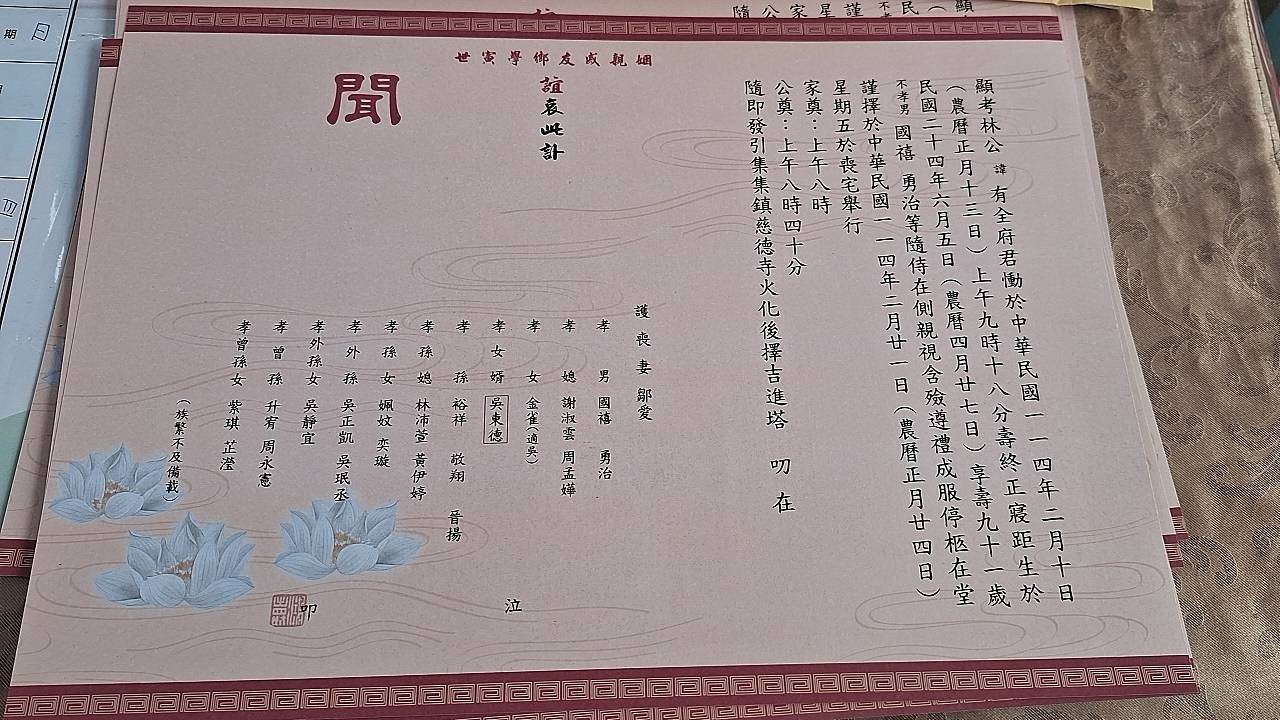 顯考林公 諱 有全府君慟於中華民國一一四年二月十日
（農曆正月十三日）上午九時十八分壽終正寢距生於
民國二十四年六月五日（農曆四月廿七日）享壽九十一歲
不孝男 國禧 勇治等隨侍在側親視含殮遵禮成服停柩在堂
謹擇於中華民國一一四年二月廿一日（農曆正月廿四日）
星期五於喪宅舉行
家奠：上午八時
公奠：上午八時四十分
隨即發引集集鎮慈德寺火化後擇吉進塔 叨 在
姻親戚友鄉學寅世
誼哀此訃
聞
護喪妻 鄒愛
孝男 國禧 勇治
孝媳 謝淑雲 周孟嬅
孝女 金雀（適吳）
孝女婿 吳東德
孝孫 裕祥 敬翔 晉揚
孝孫媳 林沛萱 黃伊婷
孝孫女 姵妏 奕璇
孝外孫 吳正凱 吳珉丞
孝外孫女 吳靜宜
孝曾孫 升宥 周永憲
孝曾孫女 紫琪 芷瀅
（族繁不及備載）
泣
叩